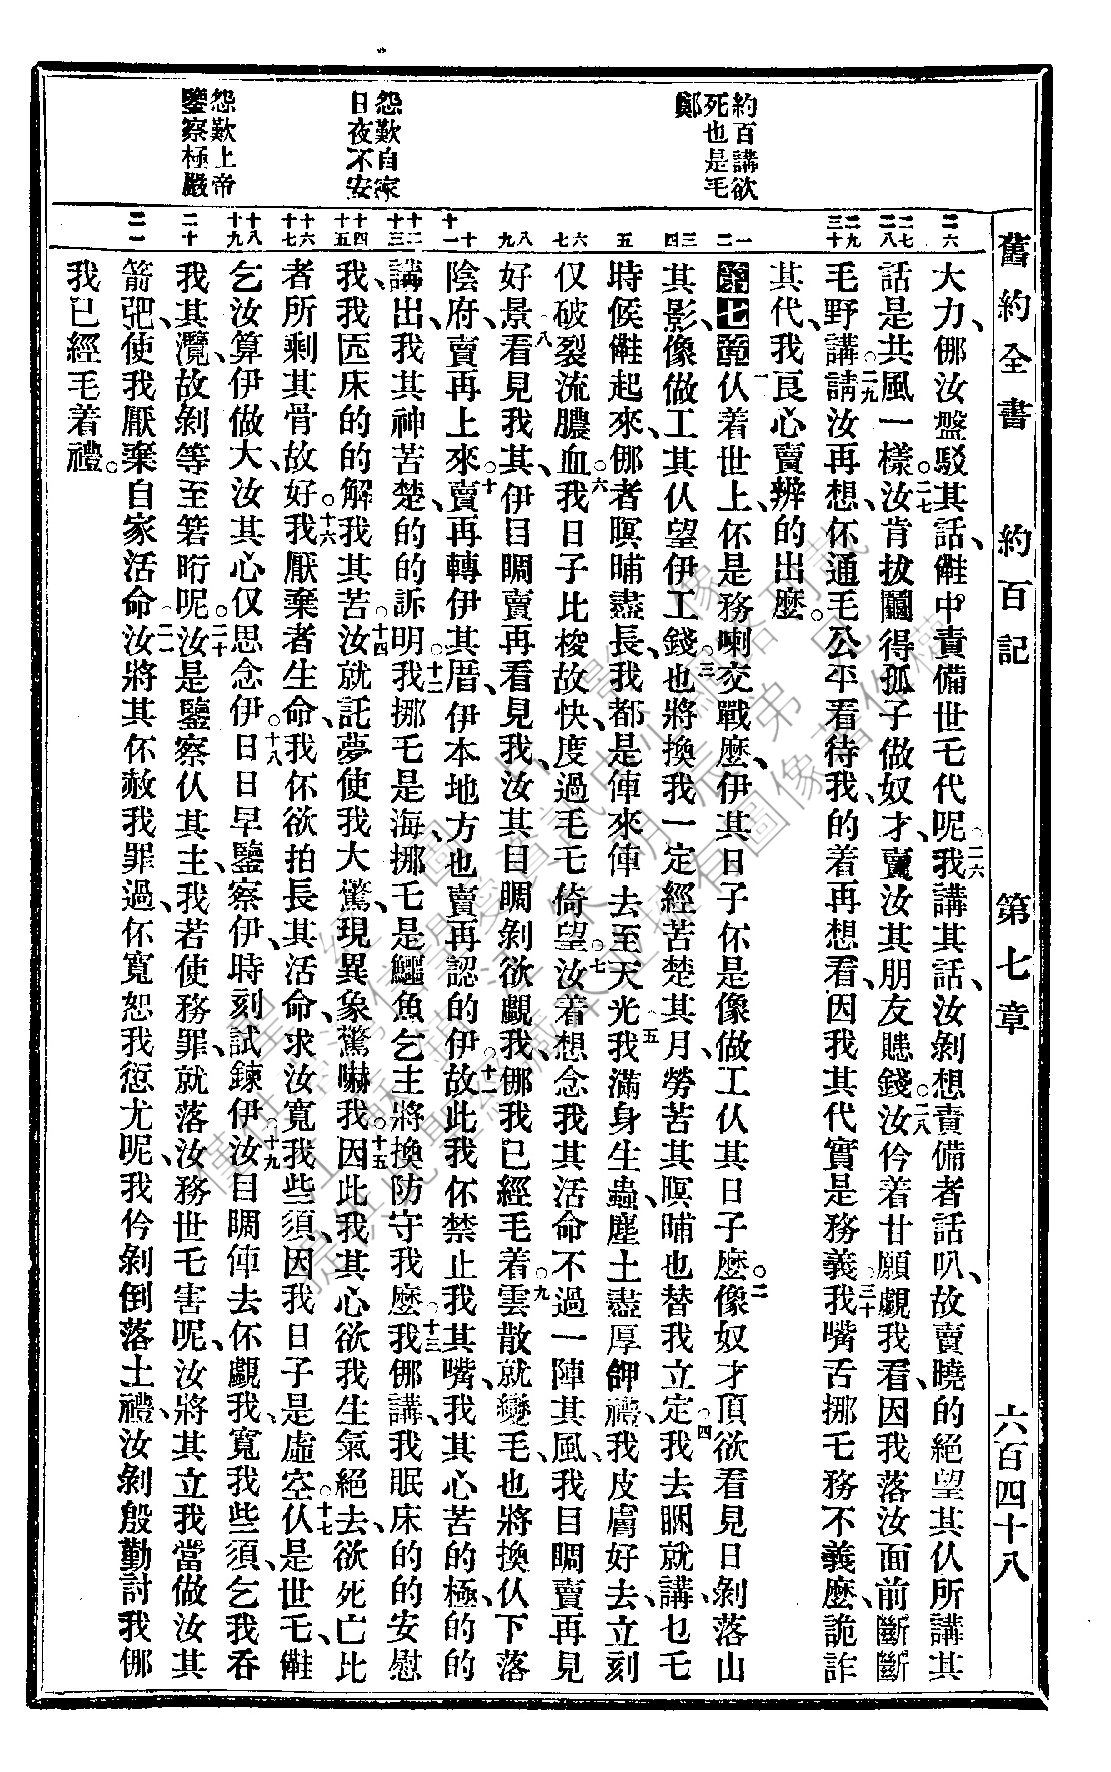 舊約全書　約百記　第七章　六百四十八
約百講欲
死也是乇
鄭
怨歎自家
日夜不安
怨歎上帝
鑒察極嚴
二六
二七
二八
二九
三十
一
二
三
四
五
六
七
八
九
十
十一
十二
十三
十四
十五
十六
十七
十八
十九
二十
二一
大力、㑚汝盤駁其話、𠆧中責備世乇代呢。二六我講其話、汝剝想責備者話叭、故賣曉的絕望其仈所講其
話是共風一樣。二七汝肯拔鬮得孤子做奴才、賣汝其朋友賸錢。二八汝仱着甘願覷我看、因我落汝面前斷斷
毛野講。二九請汝再想、伓通毛公平看待我、的着再想看、因我其代實是務義。三十我嘴舌挪乇務不義麽、詭詐
其代、我良心賣辨的出麽。
第七章一仈着世上、伓是務喇交戰麽、伊其日子伓是像做工仈其日子麽。二像奴才頂欲看見日剝落山
其影、像做工其仈望伊工錢。三也將換我一定經苦楚其月、勞苦其暝晡也替我立定。四我去睏就講、乜毛
時候𠆧起來、㑚者暝晡盡長、我都是俥來俥去至天光。五我滿身生蟲、塵土盡厚𩚨禮、我皮膚好去、立刻
仅破裂流膿血。六我日子比梭故快、度過毛乇倚望。七汝着想念我其活命不過一陣其風、我目睭賣再見
好景。八看見我其、伊目睭賣再看見我、汝其目睭剝欲覷我、㑚我已經毛着。九雲散就變毛、也將換仈下落
陰府、賣再上來。十賣再轉伊其厝、伊本地方也賣再認的伊。十一故此我伓禁止我其嘴、我其心苦的極、的的
講出、我其神苦楚、的的訴明。十二我挪乇是海、挪乇是鱷魚、乞主將換防守我麽。十三我㑚講、我眠床的的安慰
我、我匟床的的解我其苦。十四汝就託夢使我大驚、現異象驚嚇我。十五因此我其心欲我生氣絕去、欲死亡比
者所剩其骨故好。十六我厭棄者生命、我伓欲拍長其活命、求汝寬我些須、因我日子是虛空。十七仈是世乇、𠆧
乞汝算伊做大、汝其心仅思念伊。十八日日早鑒察伊、時刻試鍊伊。十九汝目睭俥去伓覷我、寬我些須、乞我吞
我其瀾、故剝等至箬昕呢。二十汝是鑒察仈其主、我若使務罪、就落汝務世乇害呢、汝將其立我當做汝其
箭弝、使我厭棄自家活命。二一汝將其伓赦我罪過、伓寬恕我愆尤呢、我仱剝倒落土禮、汝剝殷勤討我、㑚
我已經毛着禮。